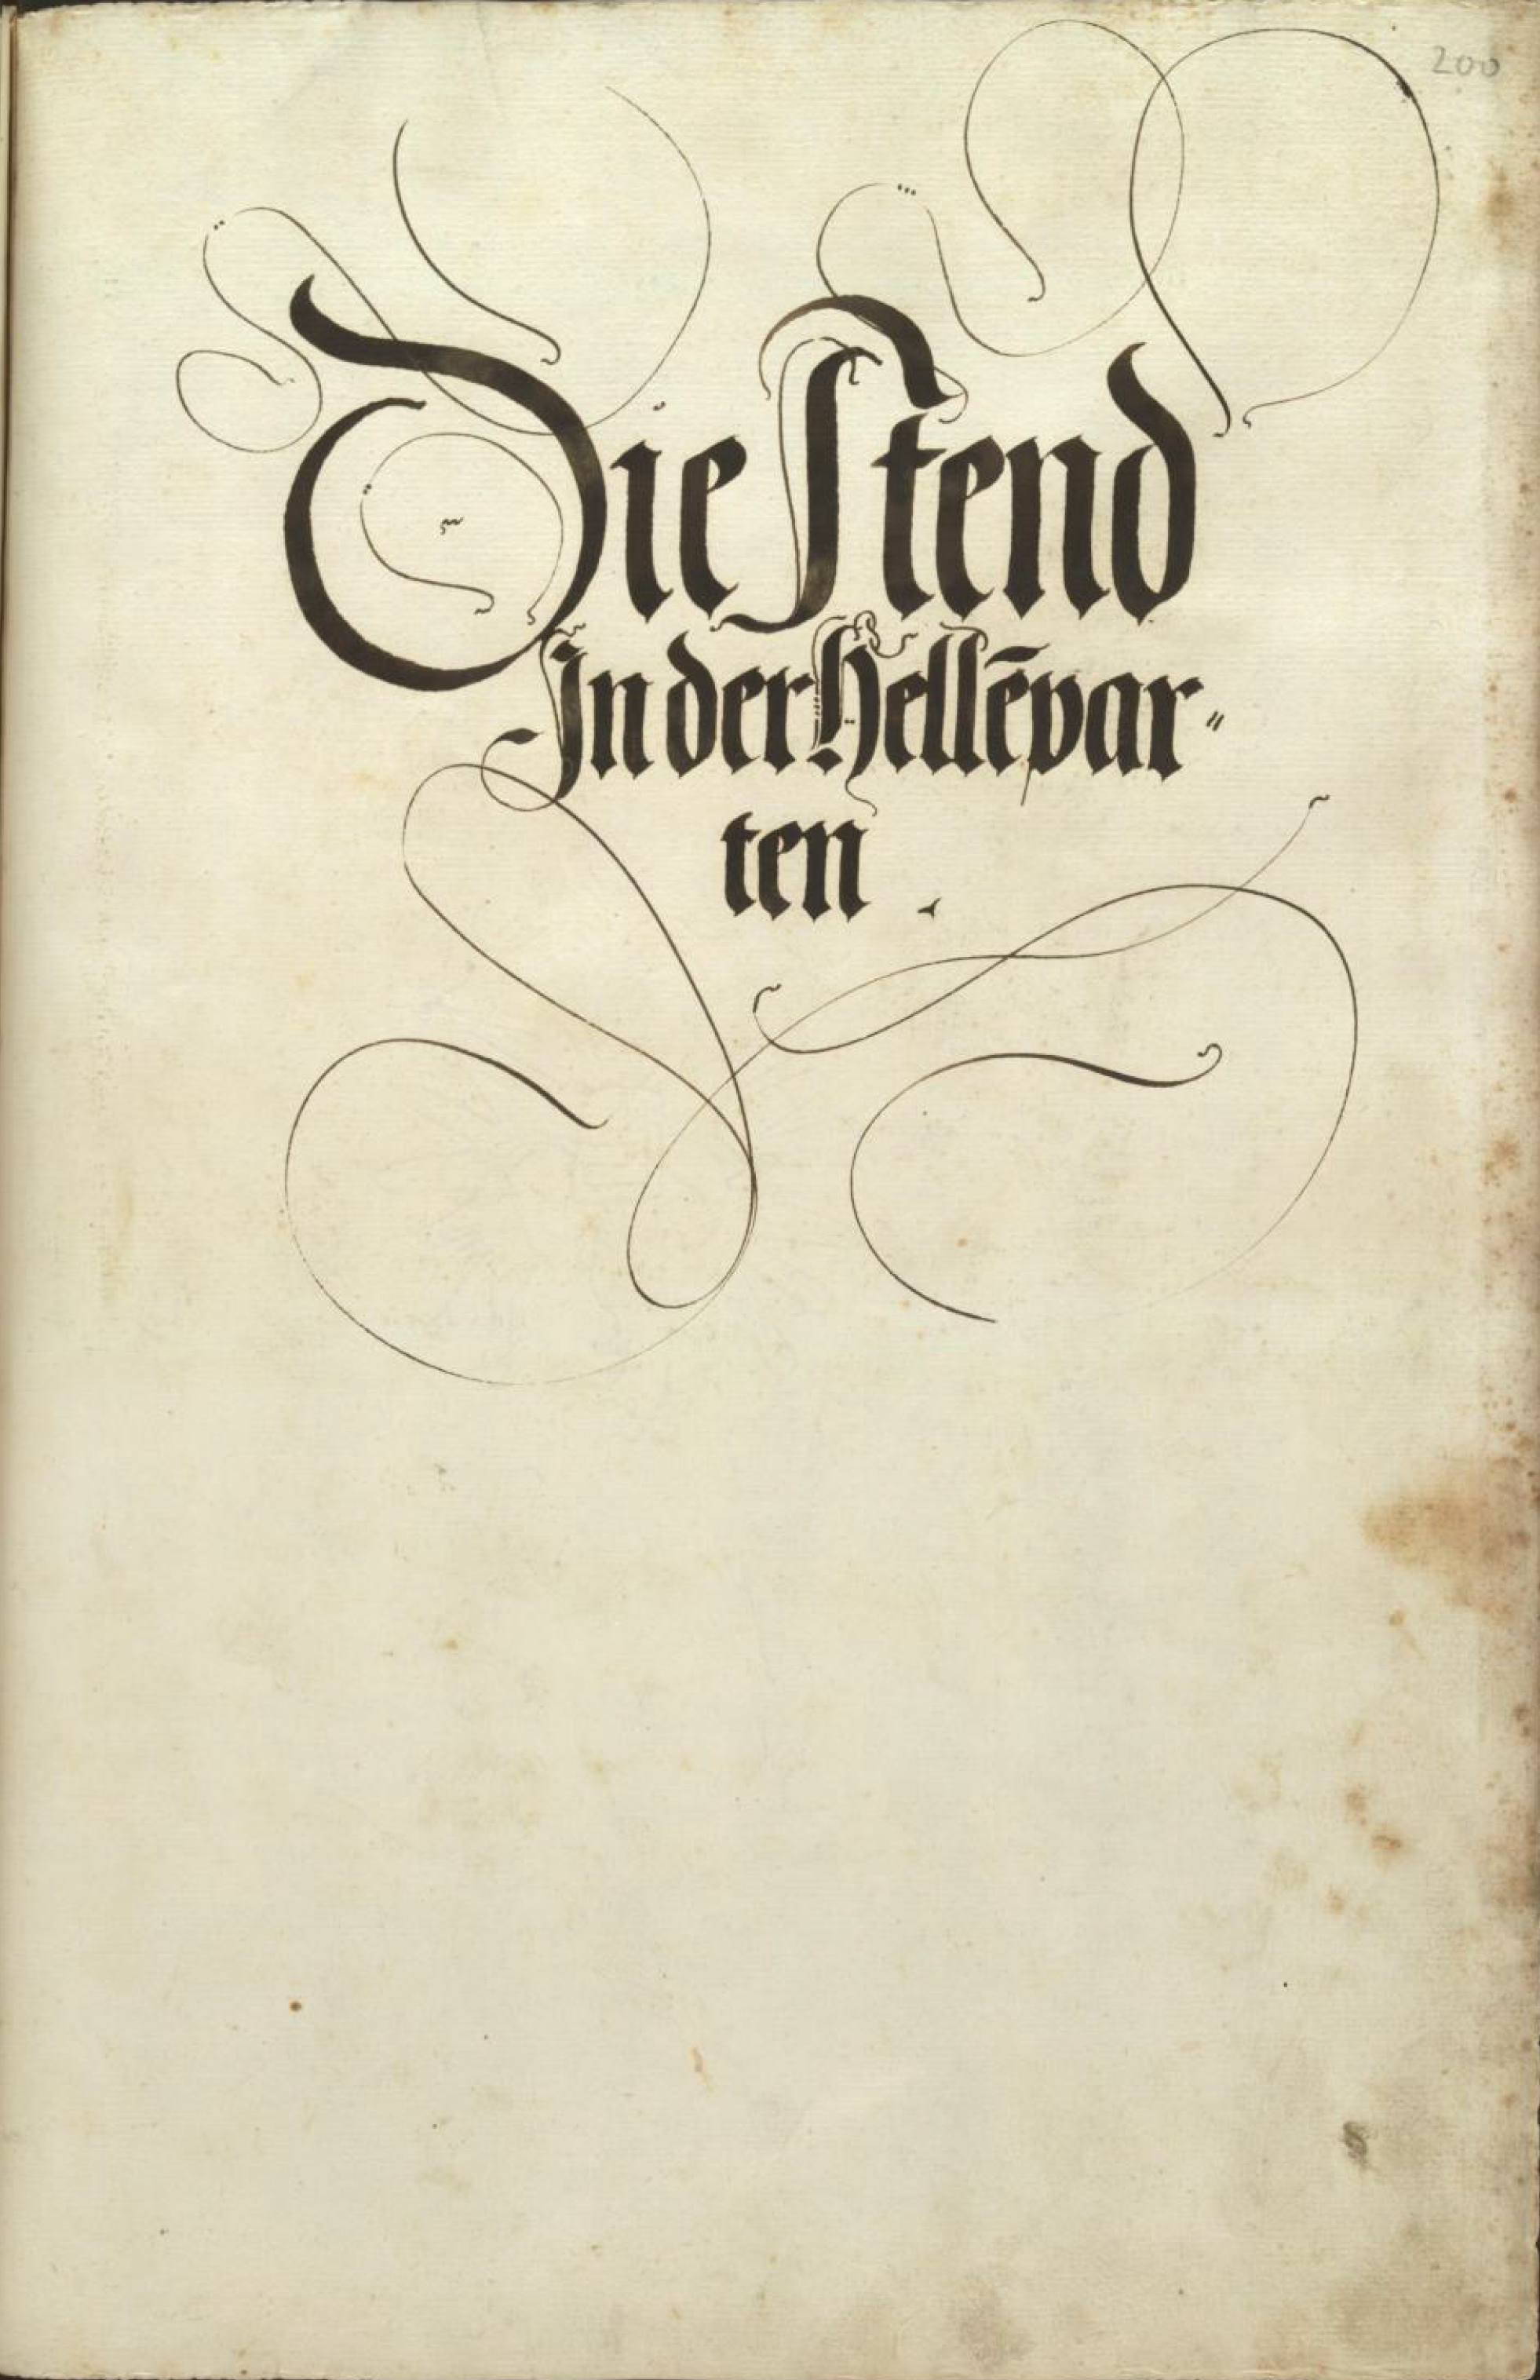 200
Die Stend
In der Hellēpar⸗
ten .